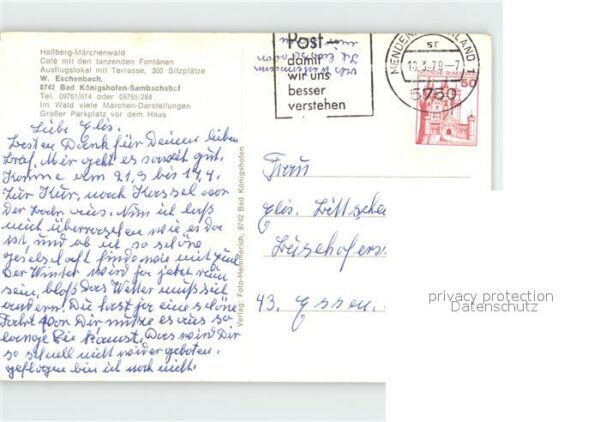 Haßberg-Märchenwald
Café mit den tanzenden Fontänen
Ausflugslokal mit Terrasse, 300 Sitzplätze
W. Eschenbach,
8742 Bad Königshofen-Sambachshof
Tel. 09761/614 oder 09765/284
Im Wald viele Märchen-Darstellungen
Großer Parkplatz vor dem Haus
Liebe Elis.
Besten Dank für Deinen lieben
Brief. Mir geht es soweit gut.
Komme vom 21.3 bis 17.4.
zur Kur, nach Kassel von
der Bahn aus. Nun ich laß
mich überraschen wie es da
ist, und ob ich so schöne
Gesellschaft finde wie mit Euch
Der Winter wird ja jetzt rum
sein, bloß das Wetter muß sich
ändern. Du hast ja eine schöne
Fahrt vor Dir nutze es aus so
lange Du kannst. Das wird Dir
so schnell nicht wieder geboten.
geflogen bin ich noch nicht.
Verlag: Foto-Hemmerich, 8742 Bad Königshofen
Post
damit
wir uns
besser
verstehen
MENDEN
sr
-7
5750
DEUTSCHE BUNDES
50
Frau
Elis.
43. Essen.
privacy protection
Datenschutz